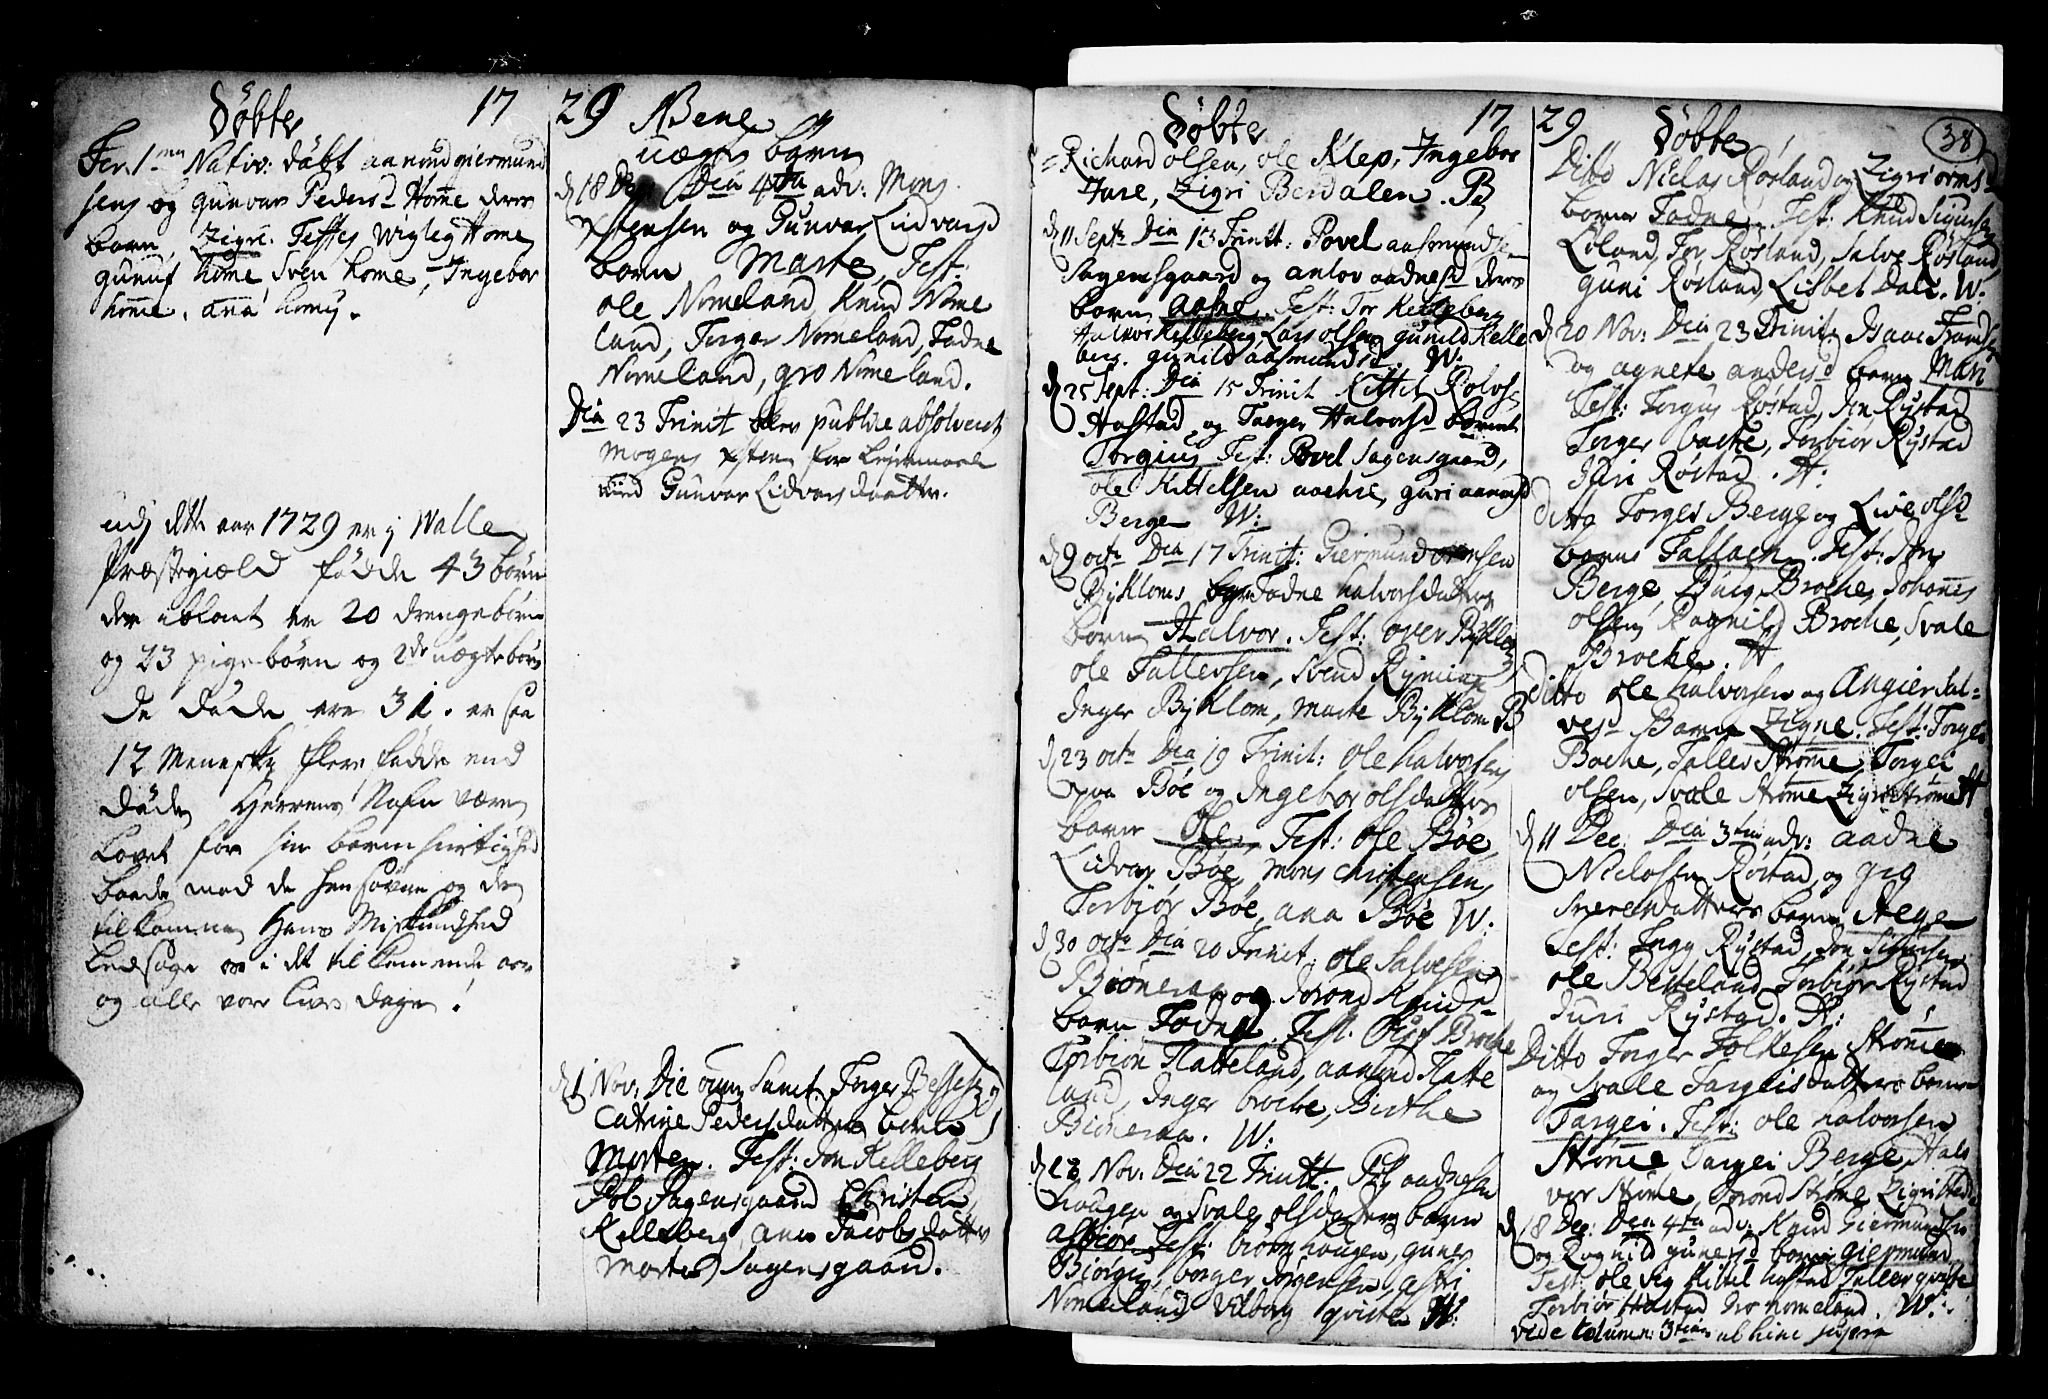 Døbte 17
Fer. 1ma Nativ: døbt aanund giermund
sens og gunvor Peders d Home deres
barn Zigri. Testes Wigleg Home
gunuf home Sven home, Ingebor
home, ana homj.
udj dette aar 1729 er j Walle
Præstegiæld fødde 43 børn
der iblant er 20 drengebørn
og 23 pigebørn og 2de uægte børn
De døde ere 31. er saa
12 Meneske flere fødde end
døde. Herrens Nafn være
Lovet for sin barmhiertighed
baade mod de hensovne og de
tilkomne Hans Miskundhed
Ledsage os i det tilkommende aar
og alle vore Lives dage!
29 NBene
uægte børn
d 18 De Dca 4ta adv: Mons
Xstensen og Gunvor Lidvars d
barn Marte, Test:
ole Nomeland, Knud Nome
land, Torger Nomeland, Todne
Nomeland, gro Nomeland.
Dca 23 Trinit blev publice absolveret
Mogens Xsten for Leiermaal
med Gunvor Lidvars daatter.
d 1 Nov: Die omn Sanct. Torger Besses:
Catrine Pedersdatters barn
Morten. Test: Jon Kelleberg
Pol Sagensgaard Christen
Kelleberg, ana Jacobs datter
Marte Sagensgaard.
Døbte 17
Richard olsen, ole Klep, Ingebor
Hare, Zigri Berdalen. B
d 11 Septr Dca 13 Trinit: Povel aasmundsen
Sagensgaard og anlov aadnesd deres
barn aasne. Test: Tor Kelleberg
Halvor Kelleberg, Lars olsen gunild Kelle
berg. gunild aasmundsd. W:
d 25 Sept: Dca 15 Trinit Kittil Rolvs
Hastad og Targer Halvorsd barn
Torgius Test: Povel Sagensgaard,
ole Kittelsen aachre, guri aanunsd
Berge W:
d 9 octr Dca 17 Trinit: Giermund ormsen
Byklom og Todne halvorsdatters
barn Halvor. Test: over Byklom
ole Tallevsen, Svend Rynning
Inger Byklom, Marte Byklom B
d 23 octr Dca 19 Trinit: ole halvorsen
paa Bøe og Ingebor olsdatters
barn Ole, Test: ole Bøe,
Lidvor Bøe, Mons Christensen
Torbiør Bøe, ana Bøe W:
d 30 octr Dca 20 Trinit: ole Salvesen
Biøneraa og Jorond Knudsd
barn Todne. Test. Brochе
Torbion Flatteland, aanund Flatte
land, Inger broche, Birthe
Biøneraa. W:
d 13 Nov: Dca 22 Trinit. aadnesen
hougen og Svale olsdatters barn
asbiør. Test: biørn hougen, guner
Biørgus, borger Jørgensen, astri
Nomeland Vilborg qviste W:
29 Døbte 38
Ditto Niclas Røsland og Zigri ormsd
barn Todne. Test: Knud Sigursen
Loland, Tor Røsland, Salve Røsland
Guni Røsland, Lisbet Dale. W:
d 20 Nov: Dca 23 Trinit: Isaac Frands
og agnete andersd barn Mari
Test: Torgus Røstad, Jon Rystad
Torger bache, Torbiør Rystad
Jøri Røstad. H:
ditto Torger Berge og Live olsd
barn Tallach. Test: Jon
Berge, Broche, Johannes
olsen, Ragnild Broche, Svale
Broche. H
Ditto ole halvorsen og Angier Sal=
vesd Barn Zigne. Test: Torger
Bache, Tallev Strøme, Torgei
olsen, Svale Strøme Zigri Strøme H
d 11 Dec: Dca 3tia adv: aadne
Niclosen Røstad, og gro
Snerredatters barn Aege
Test: Tagg Rystad, Jon Sigursen
ole Besteland, Torbiør Rystad
Juri Rystad. H:
Ditto Torger Folkesen Strøme
og Svalle Targeisdatters barn
Targei. Test: ole halvorsen
Strøme, Targei Berge, Hal
vor Strøme, Jorond Strøme Zigri
d 18 Dec: Dca 4ta adv: Knud Giermunds:
og Rognild gunersd barn giermund
Test: ole Kittel hastad Tallev qviste
Torbiør Hastad Gro nomeland. W:
vide column: 3tiam ab hine supera